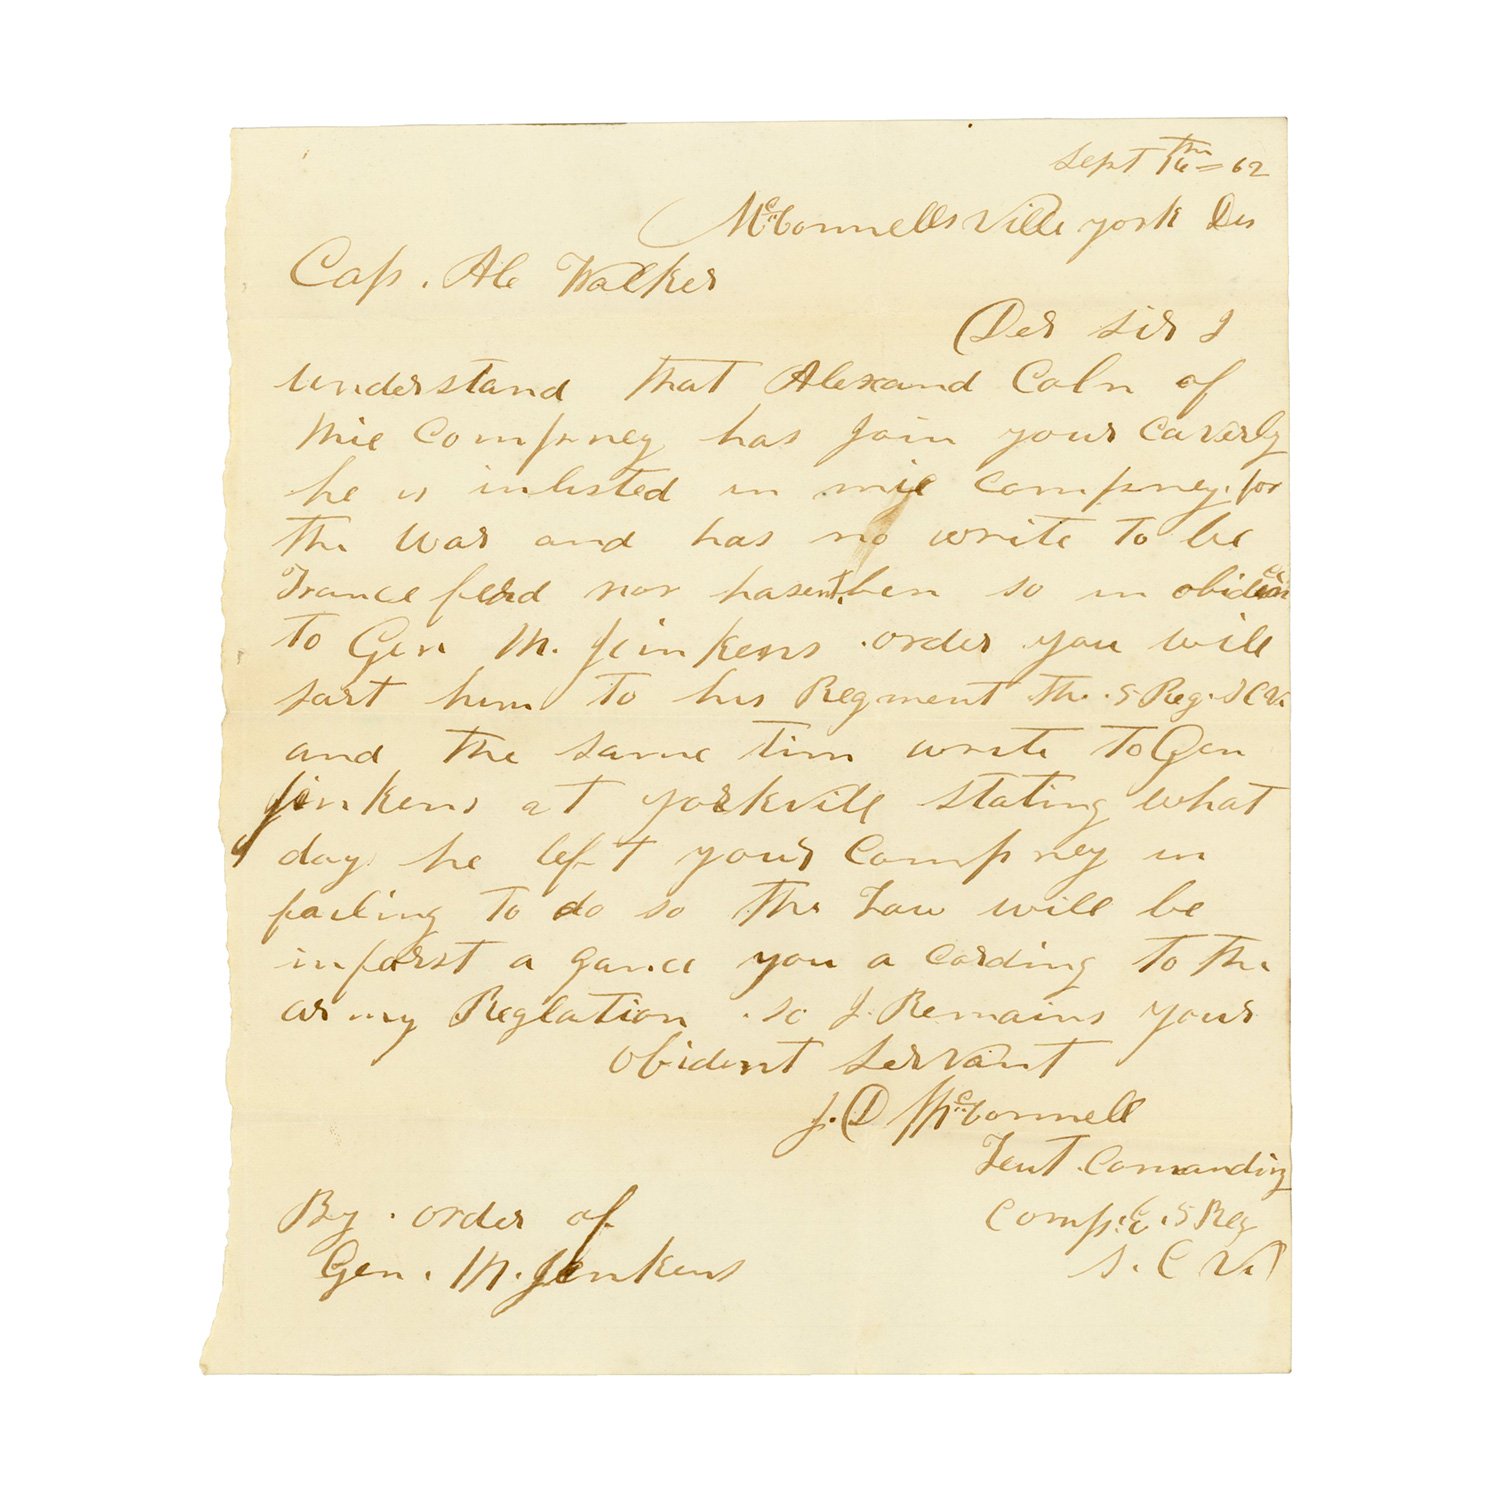 Sept 16th = 62
McConnellsville york Des
Cap. Ale Walker
Der Sir I
understand that Alexand Coln of
mie Compney has join your Caverly
he is inlisted in mie Compney. for
the War and has no write to be
Tranceferd nor hasent ben so in
to Gen M. Jeinkens order you will
sart him to his Regment the 5 Reg. S C V.
and the same tim write to Gen
Jenkens at yorkvill stating what
day he left your Compney in
failing to do so the Law will be
inforst a gance you a cording to the
army Reglation. so I Remains your
obident servant
J. D McConnell
Leut. Comanding
Comp. C. 5 Reg
S. C V.
By order of
Gen. M. Jenkens